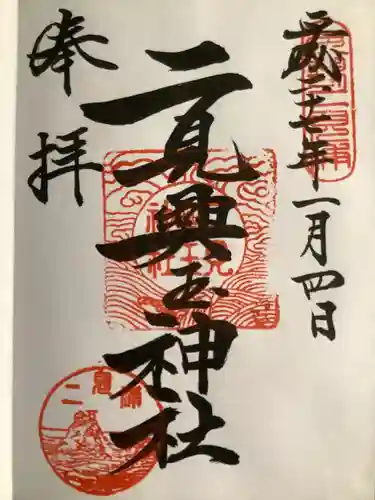 平成二十七年一月四日
二見興玉神社
奉拝